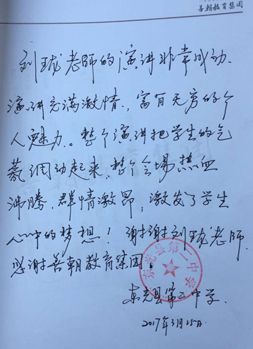 善朝教育集团
刘珑老师的演讲非常成功.
演讲充满激情,富有无穷的个
人魅力。整个演讲把学生的气
氛调动起来,整个会场热血
沸腾,群情激昂,激发了学生
心中的梦想!谢谢刘珑老师.
感谢善朝教育集团
东光县第二中学.
2017年3月15日